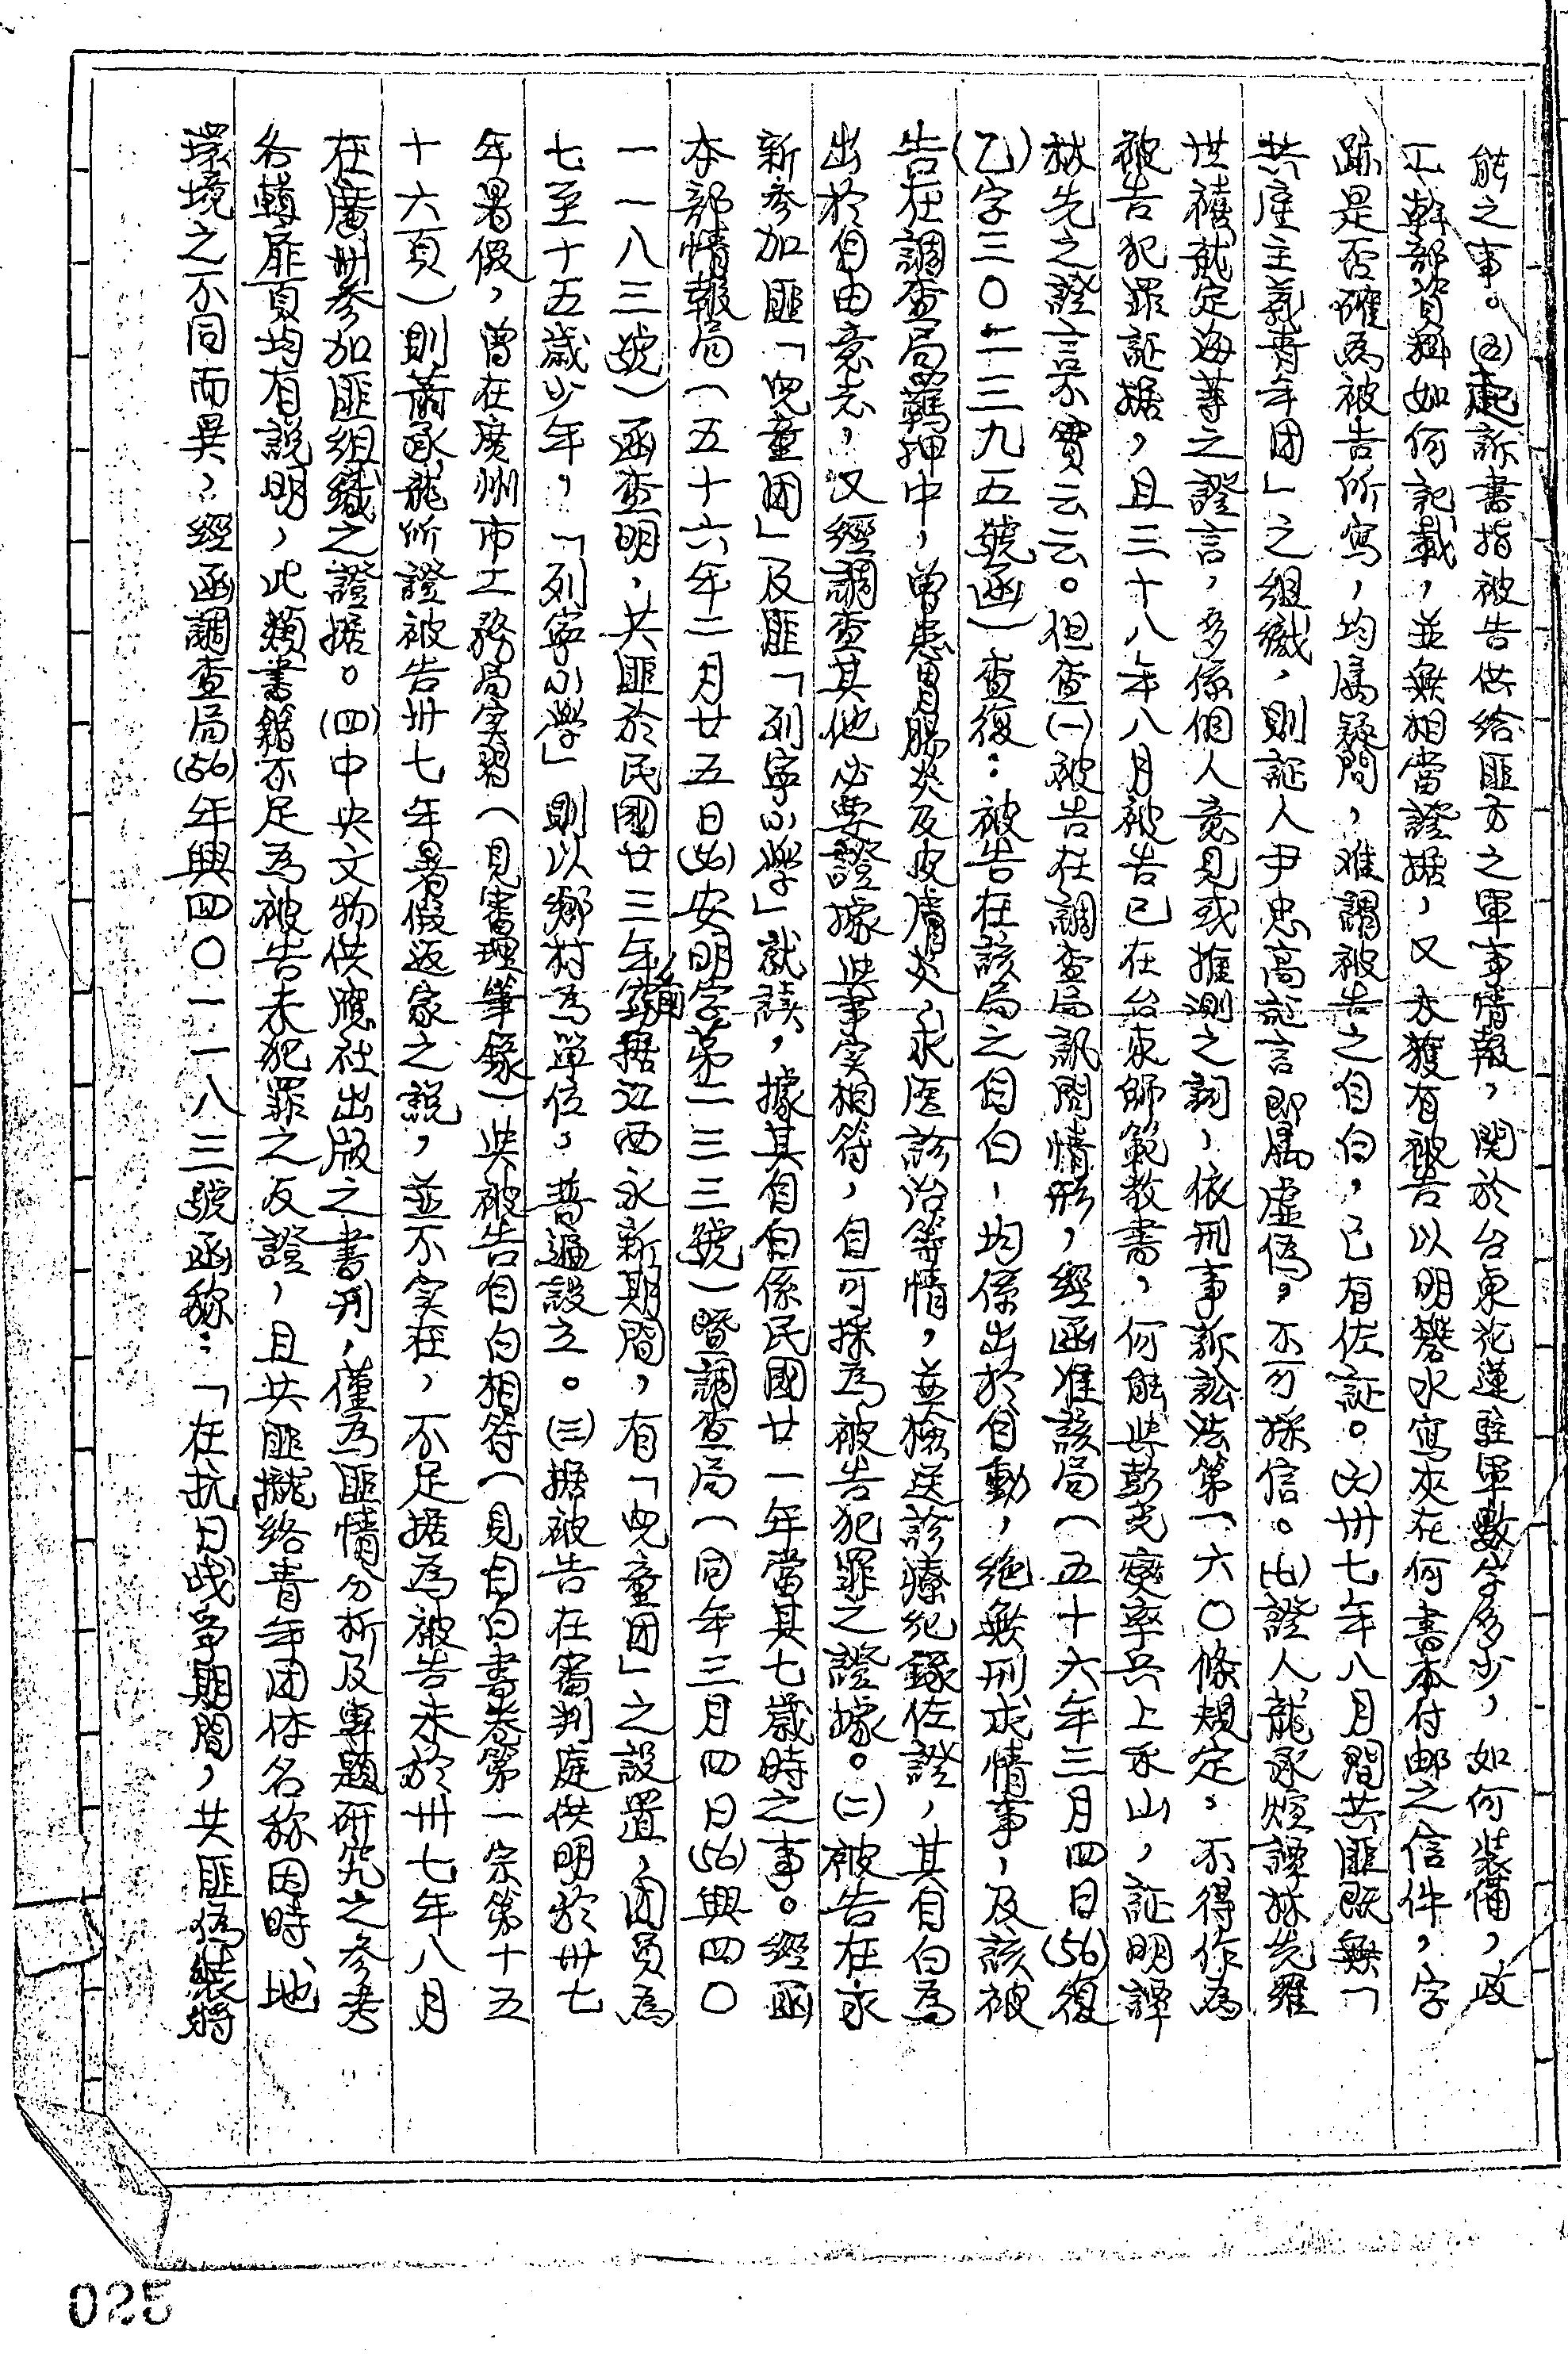 能之事。(五)起訴書指被告供給匪方之軍事情報，関於台東花蓮駐軍數字多少，如何裝備，政
工幹部資歷如何記載，並無相當證据，又未獲有被告以明礬水寫夾在何書本付郵之信件，字
跡是否確為被告所寫，均屬疑問，难謂被告之自白，已有佐証。(六)卅七年八月間共匪既無「
共產主義青年团」之組織，則証人尹忠高証言即屬虛偽，不可採信。(七)證人龍承煊譚林先羅
世禧就定海等之證言，多係個人意見或推測之詞，依刑事訴訟法第一六〇條規定，不得作為
被告犯罪証据，且三十八年八月被告已在台東師範教書，何能與彭克變率兵上禾山，証明譚
林先之證言不實云云。但查(一)被告在調查局訊問情形，經函准該局（五十六年三月四日(56)復
(乙)字三〇二三九五號函）查復：被告在該局之自白，均係出於自動，絕無刑求情事，及該被
告在調查局羈押中，曾患胃腸炎及皮膚炎，求医診治等情，並檢送診療紀錄佐證，其自白為
出於自由意志，又經調查其他必要證據與事实相符，自可採為被告犯罪之證據。(二)被告在永
新参加匪「兒童团」及匪「列寧小學」就讀，據其自白係民國廿一年當其七歲時之事。經函
本部情報局（五十六年二月廿五日(56)安明字第二三三號）暨調查局（同年三月四日(56)興四〇
一一八三號）函查明，共匪於民國廿三年竄前竊据江西永新期間，有「兒童团」之設置，团員為
七至十五歲少年，「列寧小學」則以鄉村為單位，普遍設立。(三)据被告在審判庭供明於卅七
年暑假，曾在廣州市工務局实習（見審理筆錄）與被告自白相符（見自白書卷第一宗第十五
十六頁）則蕭承龍所證被告卅七年暑假返家之說，並不实在，不足据為被告未於卅七年八月
在廣州参加匪組織之證据。(四)中央文物供應社出版之書刊，僅為匪情分析及專題研究之參考
各轉扉頁均有說明，此類書籍不足為被告未犯罪之反證，且共匪攏絡青年团体名称因時、地
環境之不同而異，經函調查局(56)年興四〇一一八三號函称：「在抗日战争期間，共匪偽裝將
025